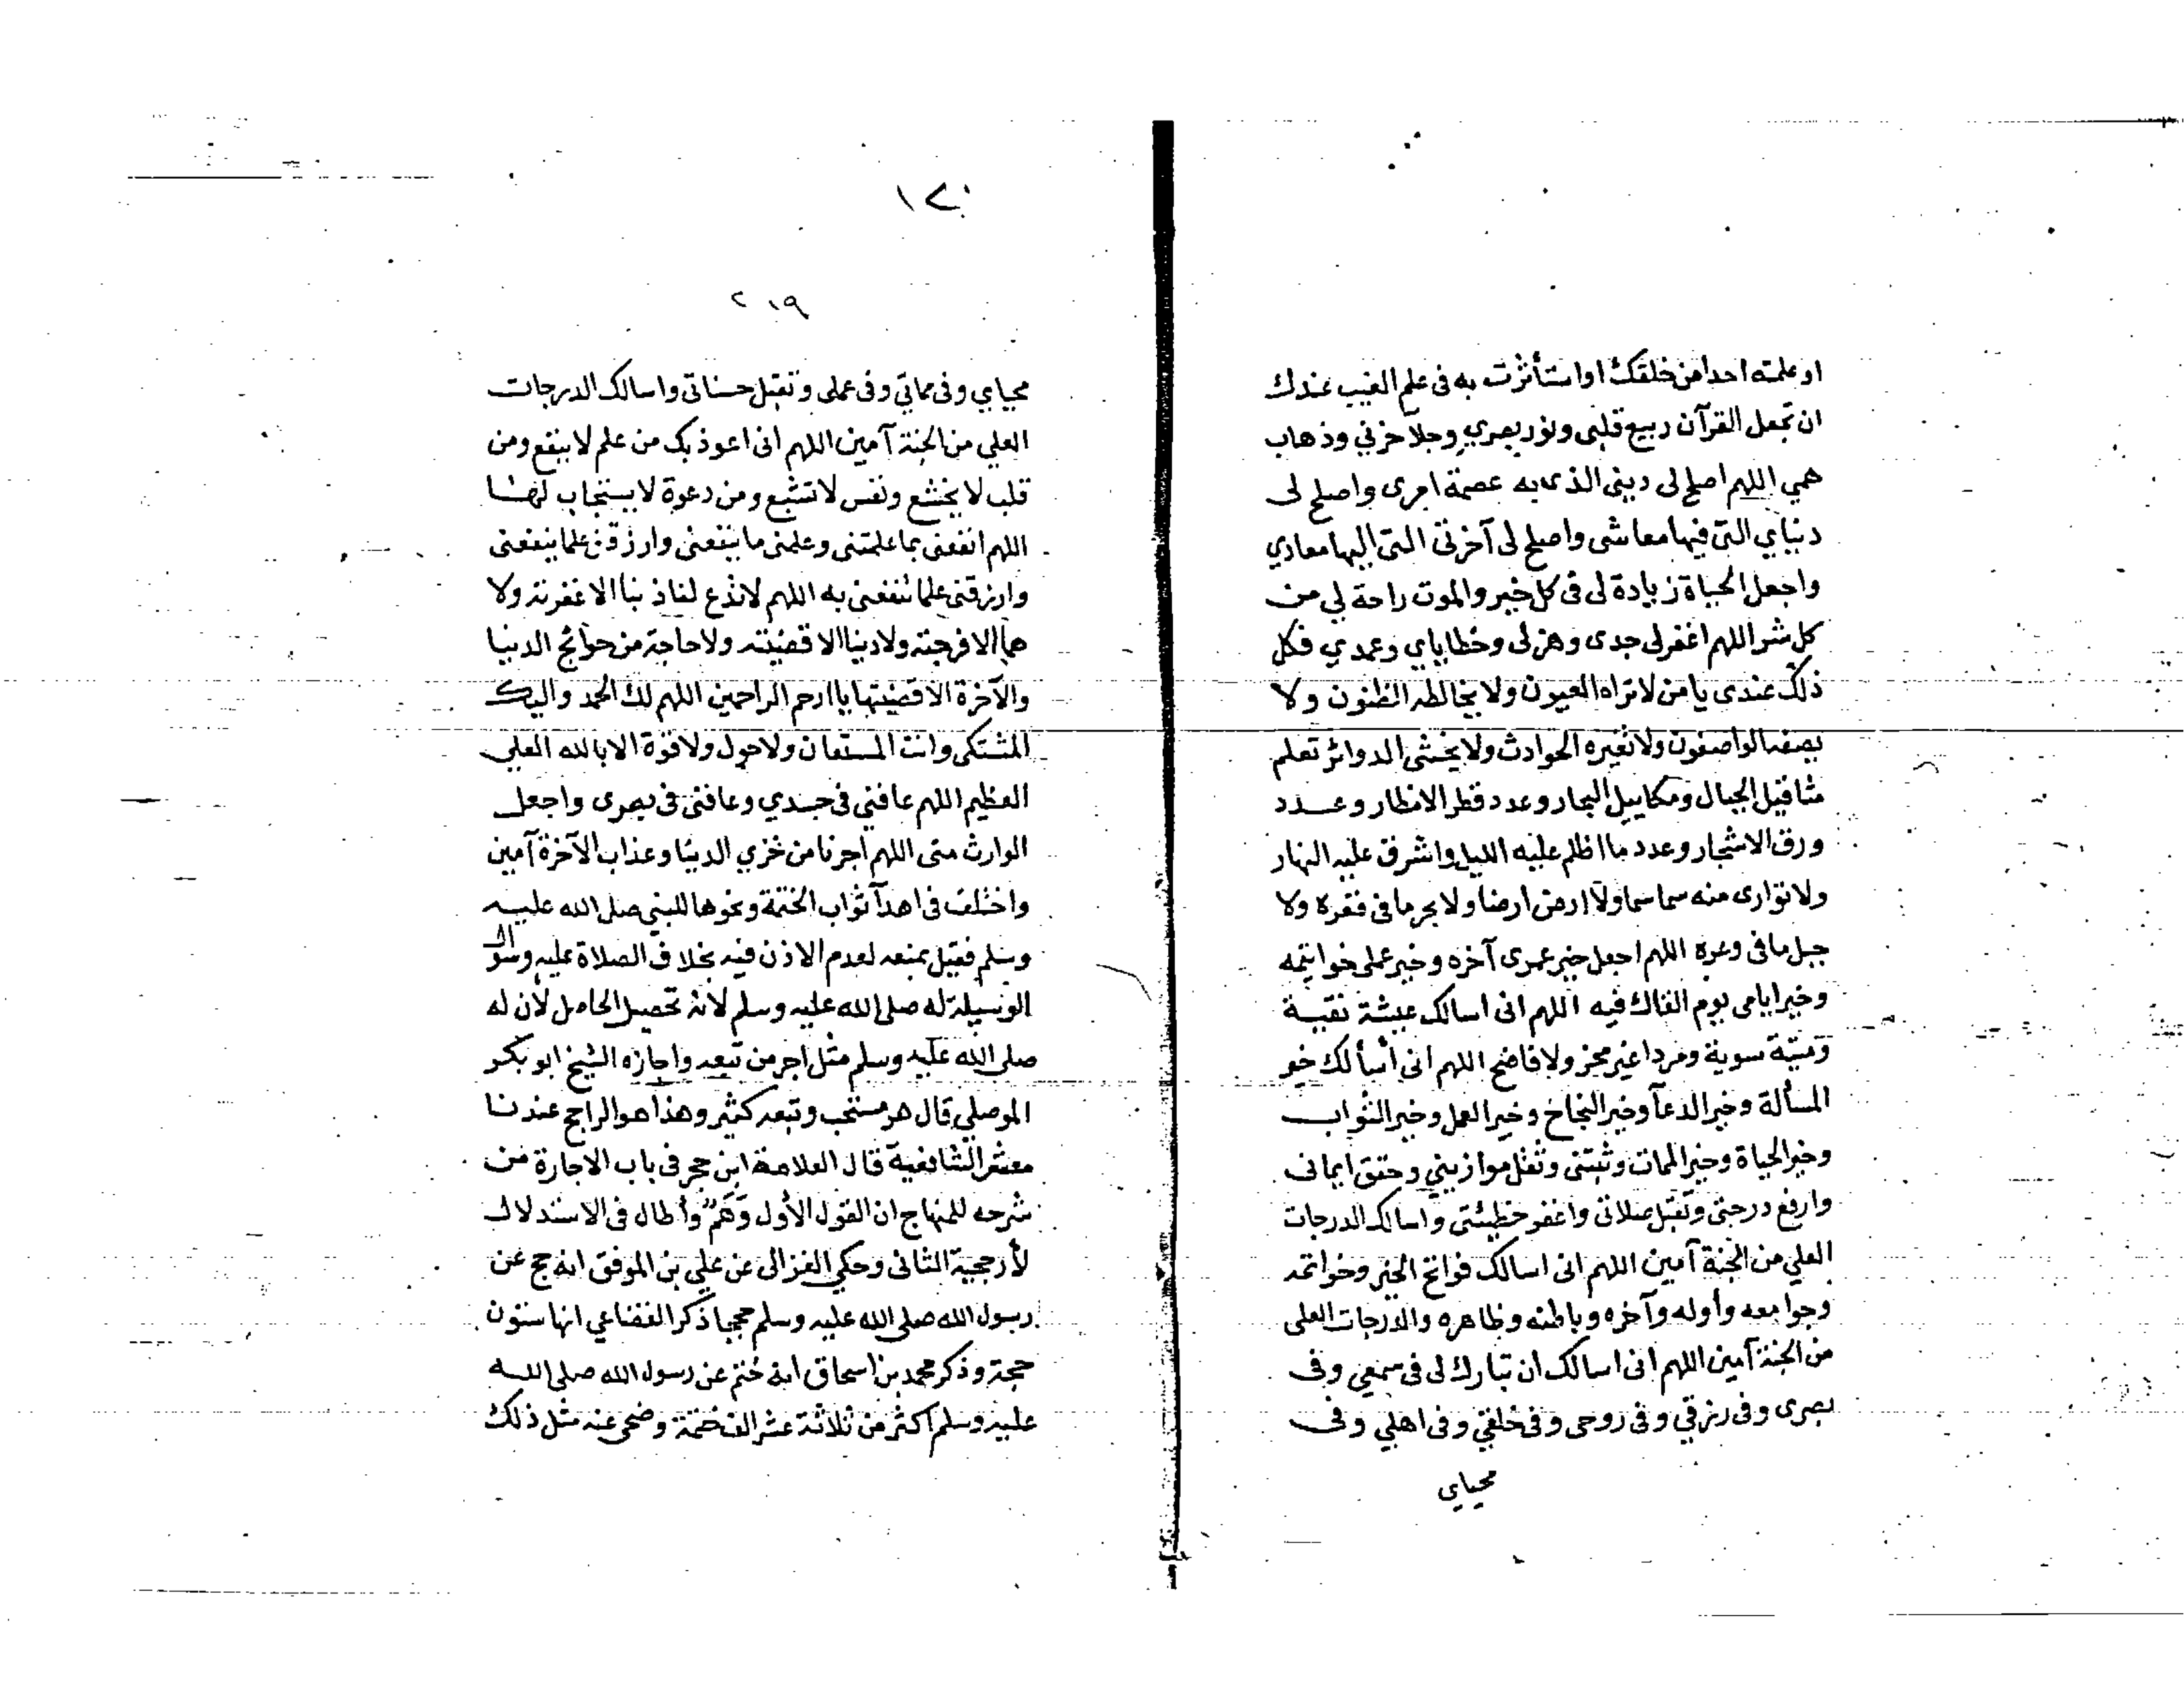 او علمته احدا من خلقك او استأثرت به فى علم الغيب عندك
ان تجعل القرآن ربيع قلبى ونور بصري وجلآ حزني وذهاب
همي اللهم اصلح لى دينى الذى به عصمة امرى واصلح لى
دنياي التى فيها معاشى واصلح لى آخرتى التى اليها معادي
واجعل الحياة زيادة لى فى كل خير والموت راحة لي من
كل شر اللهم اغفر لى جدى وهزلى وخطاياي وعمدي فكل
ذلك عندى يا من لا تراه العيون ولا يخالطه الظنون ولا
يصفه الواصفون ولا تغيره الحوادث ولا يخشى الدوائر تعلم
مثاقيل الجبال ومكاييل البحار وعدد قطر الامطار وعدد
ورق الاشجار وعدد ما اظلم عليه الليل واشرق عليه النهار
ولا توارى منه سما سما ولا ارض ارضا ولا بحر ما فى قعره ولا
جبل ما فى وعره اللهم اجعل خير عمرى آخره وخير عملى خواتيمه
وخير ايامى يوم القاك فيه اللهم انى اسالك عيشة نقية
وميتة سوية ومردا غير مخز ولا فاضح اللهم انى أسألك خير
المسألة وخير الدعآ وخير النجاح وخير العمل وخير الثواب
وخير الحياة وخير الممات وثبتنى وثقل موازيني وحقق ايمانى
وارفع درجتى وتقبل صلاتى واغفر خطيئتى واسالك الدرجات
العلي من الجنة آمين اللهم انى اسالك فواتح الخير وخواتمه
وجوامعه وأوله وآخره وباطنه وظاهره والدرجات العلى
من الجنة آمين اللهم انى اسالك ان تبارك لى فى سمعي وفى
بصرى وفى رزقي وفى روحى وفى خلقي وفى اهلي وفى
محياي
١٢٠
٢١٩
محياي وفى مماتي وفى عملى وتقبل حسناتى واسالك الدرجات
العلي من الجنة آمين اللهم انى اعوذ بك من علم لا ينفع ومن
قلب لا يخشع ونفس لا تشبع ومن دعوة لا يستجاب لها
اللهم انفعنى بما علمتنى وعلمنى ما ينفعنى وارزقنى علما ينفعنى
وارزقنى علما تنفعنى به اللهم لا تدع لنا ذنبا الا غفرته ولا
هما الا فرجته ولا دينا الا قضيته ولا حاجة من حوائج الدنيا
والآخرة الا قضيتها يا ارحم الراحمين اللهم لك الحمد واليك
المشتكى وانت المستعان ولا حول ولا قوة الا بالله العلي
العظيم اللهم عافني فى جسدي وعافنى فى بصرى واجعل
الوارث منى اللهم اجرنا من خزي الدنيا وعذاب الآخرة آمين
واختلف فى اهدآ ثواب الختمة ونحوها للنبي صلى الله عليه
وسلم فقيل بمنعه لعدم الاذن فيه بخلاف الصلاة عليه وسوال
الوسيلة له صلى الله عليه وسلم لانه تحصيل الحاصل لأن له
صلى الله عليه وسلم مثل اجر من تبعه واجازه الشيخ ابو بكر
الموصلي قال هو مستحب وتبعه كثير وهذا هو الراجح عندنا
معشر الشافعية قال العلامة ابن حجر فى باب الاجارة من
شرحه للمنهاج ان القول الأول وَهَمٌ وأطال فى الاستدلال
لأرجحية الثانى وحكي الغزالى عن علي بن الموفق انه حج عن
رسول الله صلى الله عليه وسلم حججا ذكر القضاعي انها ستون
حجة وذكر محمد بن اسحاق انه ختم عن رسول الله صلى الله
عليه وسلم اكثر من ثلاثة عشر الف ختمة وضحى عنه مثل ذلك